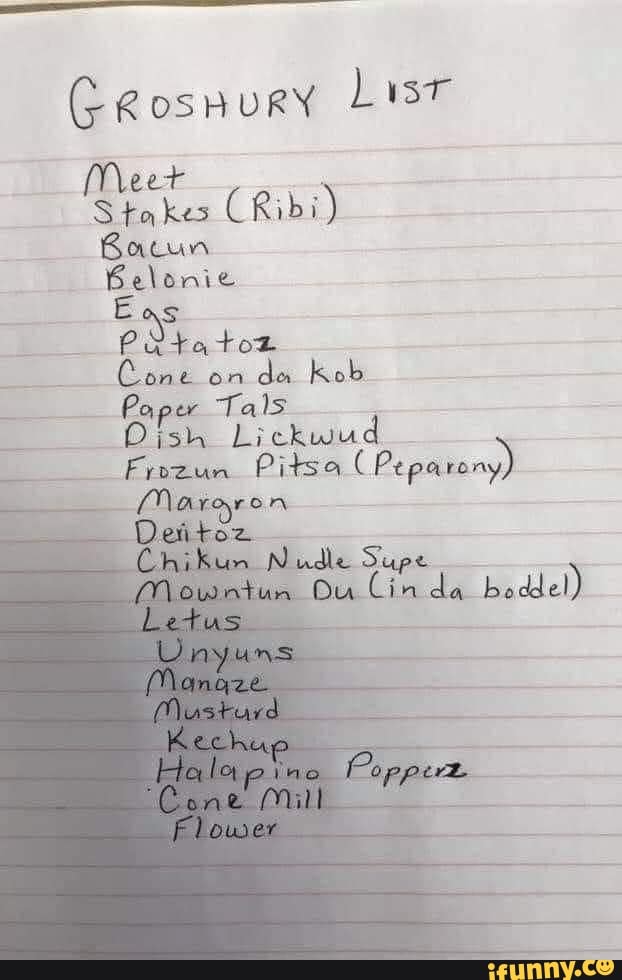 GROSHURY LIST
Meet
Stakes (Ribi)
Bacun
Belonie
Egs
Putatoz
Cone on da Kob
Paper Tals
Dish Lickwud
Frozun Pitsa (Peparony)
Margron
Deritoz
Chikun Nudle Supe
Mowntun Du (in da boddel)
Letus
Unyuns
Manaze
Musturd
Kechup
Halapino Popperz
Cone Mill
Flower
ifunny.co